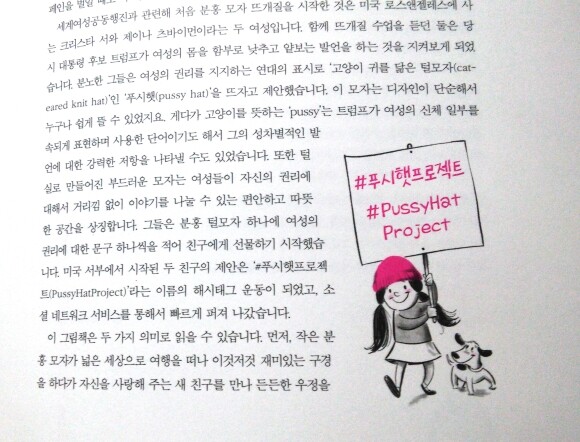 세계여성공동행진과 관련해 처음 분홍 모자 뜨개질을 시작한 것은 미국 로스앤젤레스에 사
는 크리스타 서와 제이나 츠바이먼이라는 두 여성입니다. 함께 뜨개질 수업을 듣던 둘은 당
시 대통령 후보 트럼프가 여성의 몸을 함부로 낮추고 얕보는 발언을 하는 것을 지켜보게 되었
습니다. 분노한 그들은 여성의 권리를 지지하는 연대의 표시로 ‘고양이 귀를 닮은 털모자(cat-
eared knit hat)’인 ‘푸시햇(pussy hat)’을 뜨자고 제안했습니다. 이 모자는 디자인이 단순해서
누구나 쉽게 뜰 수 있었지요. 게다가 고양이를 뜻하는 ‘pussy’는 트럼프가 여성의 신체 일부를
속되게 표현하며 사용한 단어이기도 해서 그의 성차별적인 발
언에 대한 강력한 저항을 나타낼 수도 있었습니다. 또한 털
실로 만들어진 부드러운 모자는 여성들이 자신의 권리에
대해서 거리낌 없이 이야기를 나눌 수 있는 편안하고 따뜻
한 공간을 상징합니다. 그들은 분홍 털모자 하나에 여성의
권리에 대한 문구 하나씩을 적어 친구에게 선물하기 시작했습
니다. 미국 서부에서 시작된 두 친구의 제안은 ‘#푸시햇프로젝
트(PussyHatProject)’라는 이름의 해시태그 운동이 되었고, 소
셜 네트워크 서비스를 통해서 빠르게 퍼져 나갔습니다.
이 그림책은 두 가지 의미로 읽을 수 있습니다. 먼저, 작은 분
홍 모자가 넓은 세상으로 여행을 떠나 이것저것 재미있는 구경
을 하다가 자신을 사랑해 주는 새 친구를 만나 든든한 우정을
#푸시햇프로젝트
#PussyHat
Project